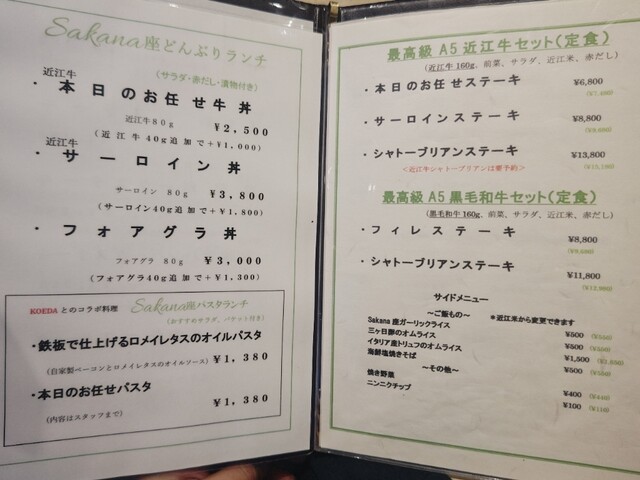 Sakana座どんぶりランチ
（サラダ・赤だし・漬物付き）
近江牛
・本日のお任せ牛丼
近江牛80g ¥2,500
（近江牛40g追加で+¥1,000）
近江牛
・サーロイン丼
サーロイン 80g ¥3,800
（サーロイン40g追加で+¥1,800）
・フォアグラ丼
フォアグラ 80g ¥3,000
（フォアグラ40g追加で+¥1,300）
KOEDAとのコラボ料理 Sakana座パスタランチ
（おすすめサラダ、バケット付き）
・鉄板で仕上げるロメイレタスのオイルパスタ
（自家製ベーコンとロメイレタスのオイルソース） ¥1,380
・本日のお任せパスタ
（内容はスタッフまで） ¥1,380
最高級A5近江牛セット(定食)
（近江牛160g、前菜、サラダ、近江米、赤だし）
・本日のお任せステーキ ¥6,800
・サーロインステーキ ¥8,800
・シャトーブリアンステーキ ¥13,800
＜近江牛シャトーブリアンは要予約＞
最高級A5黒毛和牛セット(定食)
（黒毛和牛160g、前菜、サラダ、近江米、赤だし）
・フィレステーキ ¥8,800
・シャトーブリアンステーキ ¥11,800
サイドメニュー
～ご飯もの～
Sakana座ガーリックライス ＊近江米から変更できます ¥500
三ヶ日卵のオムライス ¥500
イタリア産トリュフのオムライス ¥1,500
海鮮塩焼きそば ¥500
～その他～
焼き野菜 ¥400
ニンニクチップ ¥100